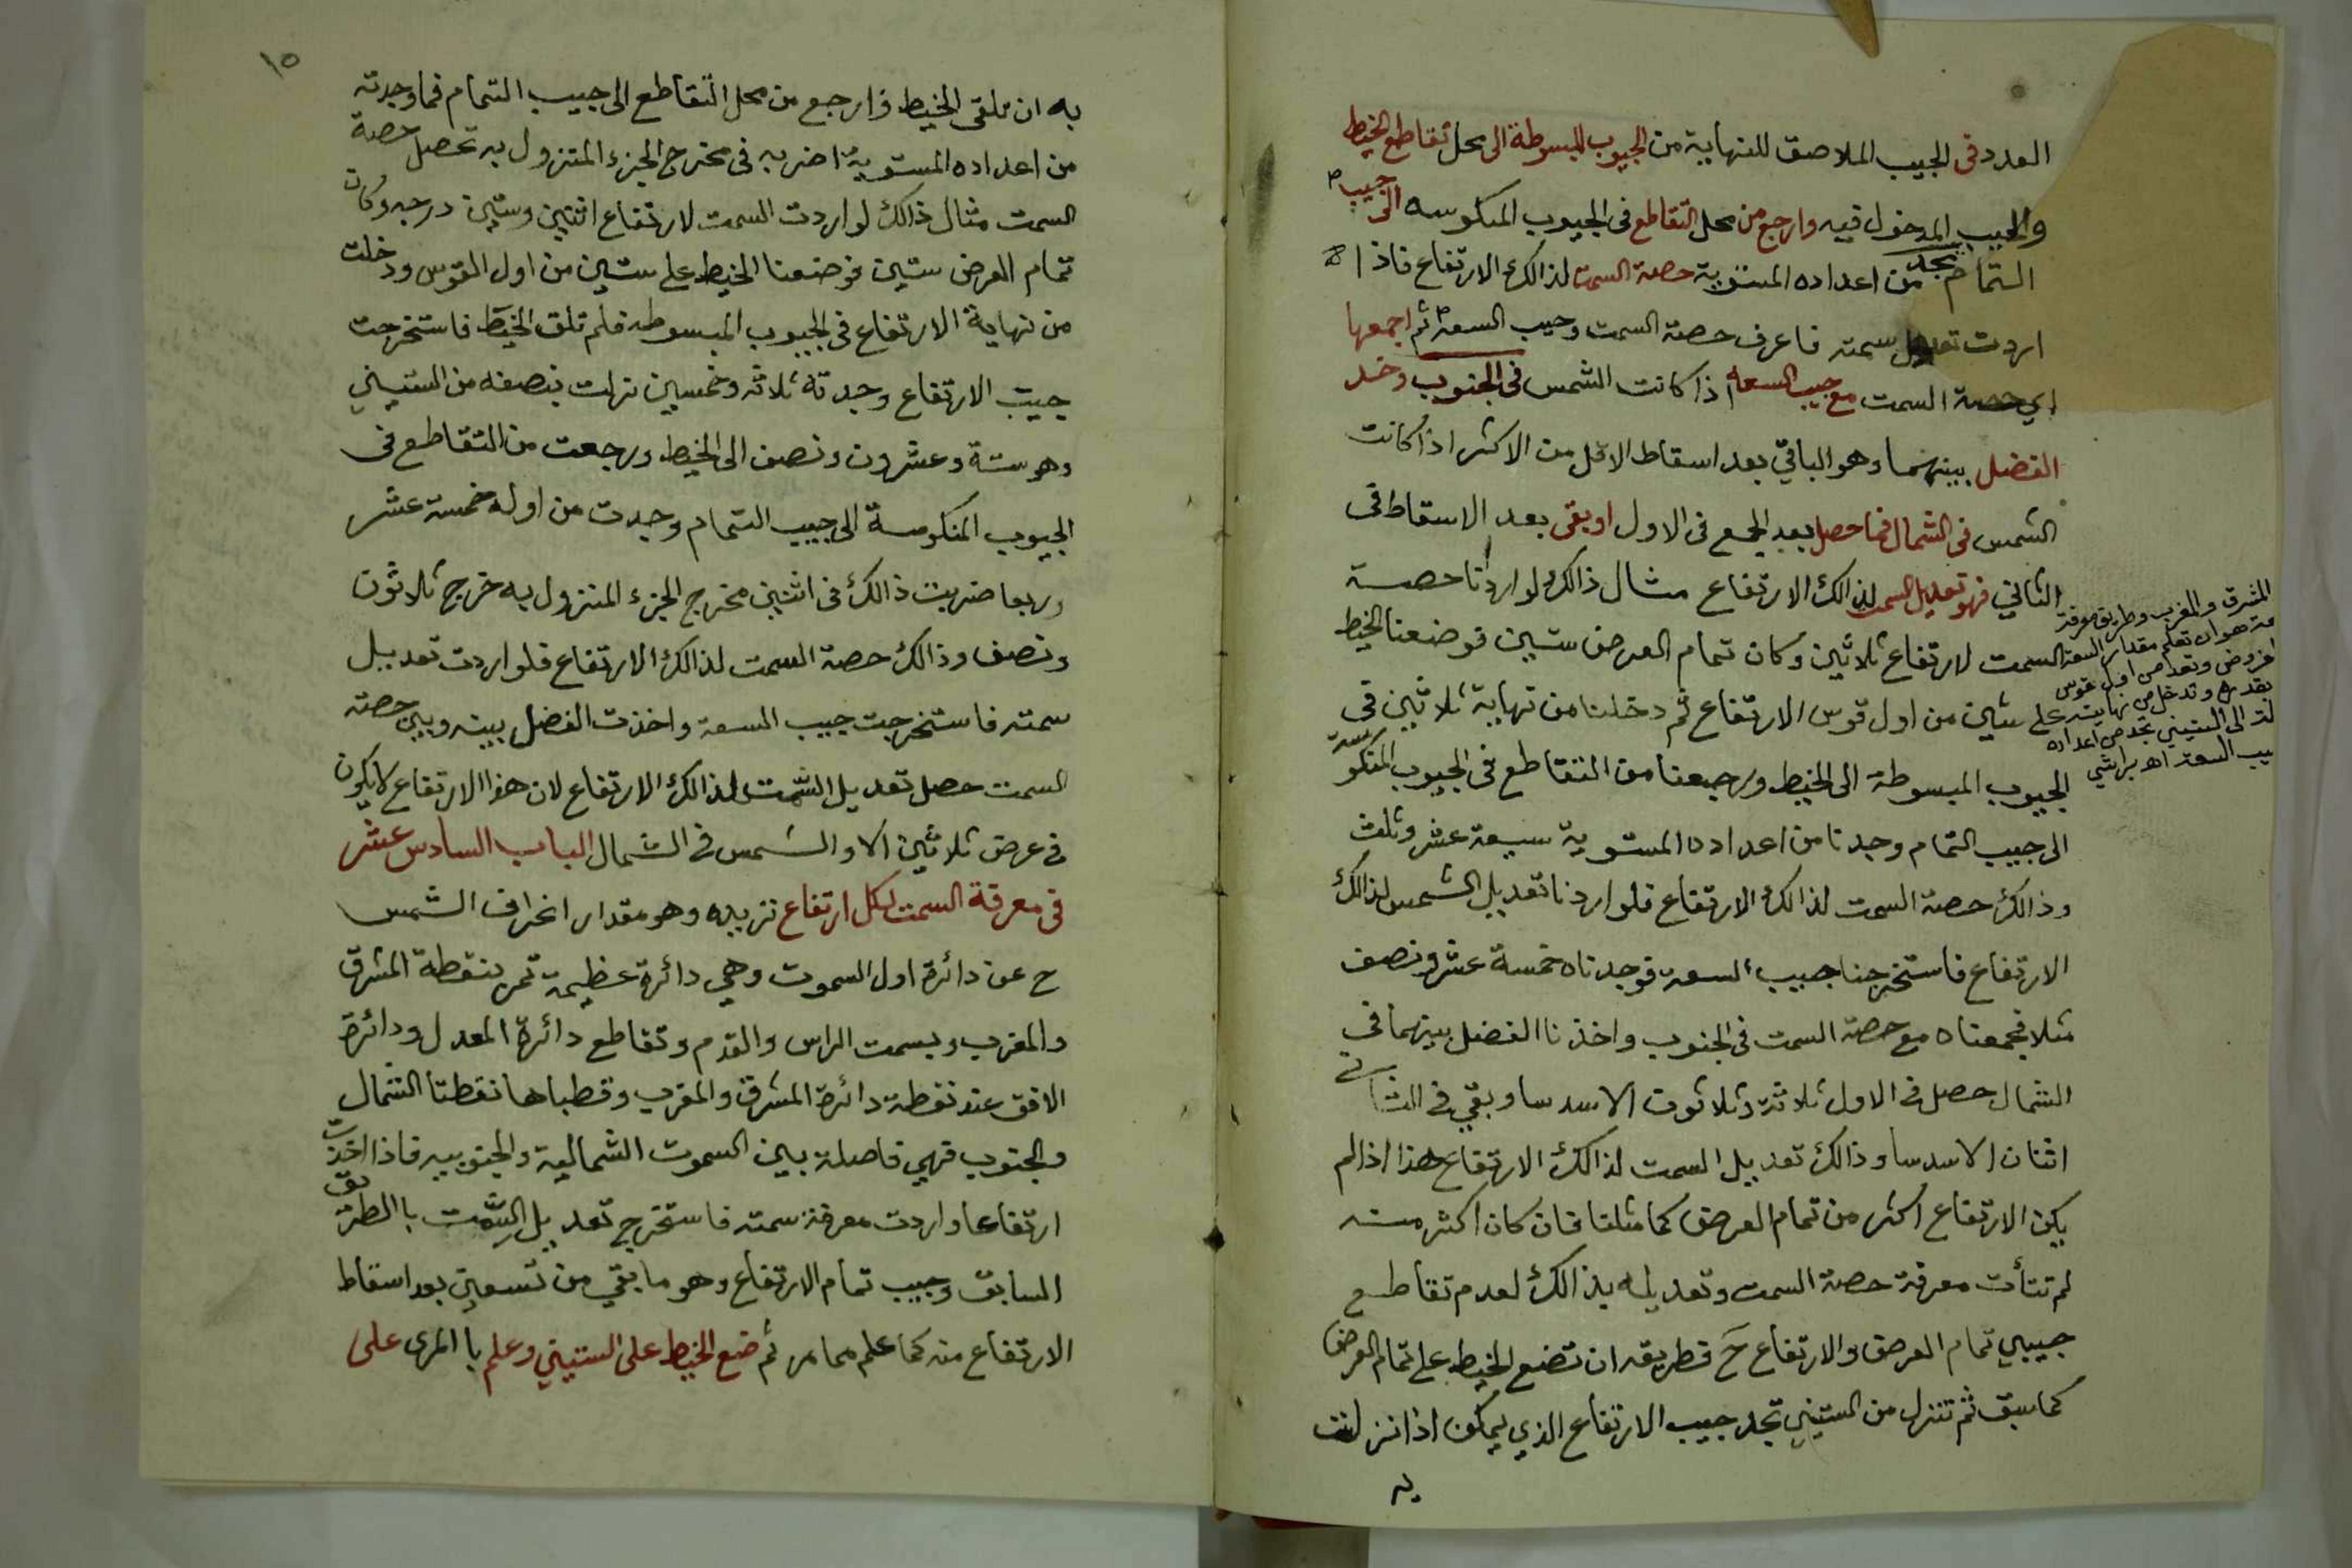 العدد فى الجيب الملاصق للنهاية من الجيوب المبسوطة الى محل تقاطع الخيط
والجيب المدخول فيه وارجع من محل التقاطع فى الجيوب المنكوسه الى جيب
التمام تجد من اعداده المستوية حصة السمت لذالك الارتفاع فاذا
اردت تعديل سمته فاعرف حصة السمت وجيب السعة ثم اجمعها
اي حصة السمت مع جيب السعة اذا كانت الشمس فى الجنوب وخذ
الفضل بينهما وهو الباقي بعد اسقاط الاقل من الاكثر اذا كانت
الشمس فى الشمال فما حصل بعد الجمع فى الاول او بقى بعد الاسقاط فى
الثاني فهو تعديل السمت لذالك الارتفاع مثال ذالك لو اردنا حصة
السمت لارتفاع ثلاثين وكان تمام العرض ستين فوضعنا الخيط
على ستين من اول قوس الارتفاع ثم دخلنا من نهاية ثلاثين فى
الجيوب المبسوطة الى الخيط ورجعنا من التقاطع فى الجيوب المنكوسة
الى جيب التمام وجدنا من اعداده المستوية سبعة عشر وثلث
وذالك حصة السمت لذالك الارتفاع فلو اردنا تعديل الشمس لذالك
الارتفاع فاستخرجنا جيب السعة فوجدناه خمسة عشر ونصف
مثلا فجمعناه مع حصة السمت فى الجنوب واخذنا الفضل بينهما فى
الشمال حصل فى الاول ثلاثة وثلاثون الاسدسا وبقي فى الثاني
اثنان الاسدسا وذالك تعديل السمت لذالك الارتفاع هذا اذا لم
يكن الارتفاع اكثر من تمام العرض كما مثلنا فان كان اكثر منه
لم تتأت معرفة حصة السمت وتعديله بذالك لعدم تقاطع
جيبي تمام العرض والارتفاع ح فطريقه ان تضع الخيط على تمام العرض
كما سبق ثم تنزل من الستيني تجد جيب الارتفاع الذي يمكن اذا نزلت
به
المشرق والمغرب وطريق معرفة
هو ان تعلم مقدار السعة
وتعد من اول قوس
بقدره وتدخل من نهايته
الى الستيني تجد من اعداده
جيب السعة اه
١٥
به ان تلقى الخيط وارجع من محل التقاطع الى جيب التمام فما وجدته
من اعداده المستوية اضربه فى مخرج الجزء المنزول به تحصل حصة
السمت مثال ذالك لو اردت السمت لارتفاع اثنين وستين درجه وكان
تمام العرض ستين فوضعنا الخيط على ستين من اول القوس ودخلت
من نهاية الارتفاع فى الجيوب المبسوطه فلم تلق الخيط فاستخرجت
جيب الارتفاع وجدته ثلاثه وخمسين نزلت بنصفه من الستيني
وهو ستة وعشرون ونصف الى الخيط ورجعت من التقاطع فى
الجيوب المنكوسة الى جيب التمام وجدت من اوله خمسة عشر
وربعا ضربت ذالك فى اثنين مخرج الجزء المنزول به خرج ثلاثون
ونصف وذالك حصة السمت لذالك الارتفاع فلو اردت تعديل
سمته فاستخرجت جيب السعة واخذت الفضل بينه وبين حصة
السمت حصل تعديل السمت لذالك الارتفاع لان هذا الارتفاع لايكون
فى عرض ثلاثين الا والشمس فى الشمال الباب السادس عشر
فى معرفة السمت لكل ارتفاع تريده وهو مقدار انحراف الشمس
ح عن دائرة اول السموت وهي دائرة عظيمة تمر بنقطة المشرق
والمغرب وبسمت الراس والقدم وتقاطع دائرة المعدل ودائرة
الافق عند نقطة دائرة المشرق والمغرب وقطباها نقطتا الشمال
والجنوب فهي فاصلة بين السموت الشمالية والجنوبيه فاذا اخذت
ارتفاعا واردت معرفة سمته فاستخرج تعديل السمت باالطريق
السابق وجيب تمام الارتفاع وهو ما بقي من تسعين بعد اسقاط
الارتفاع منه كما علم مما مر ثم ضع الخيط على الستيني وعلم باالمرى على